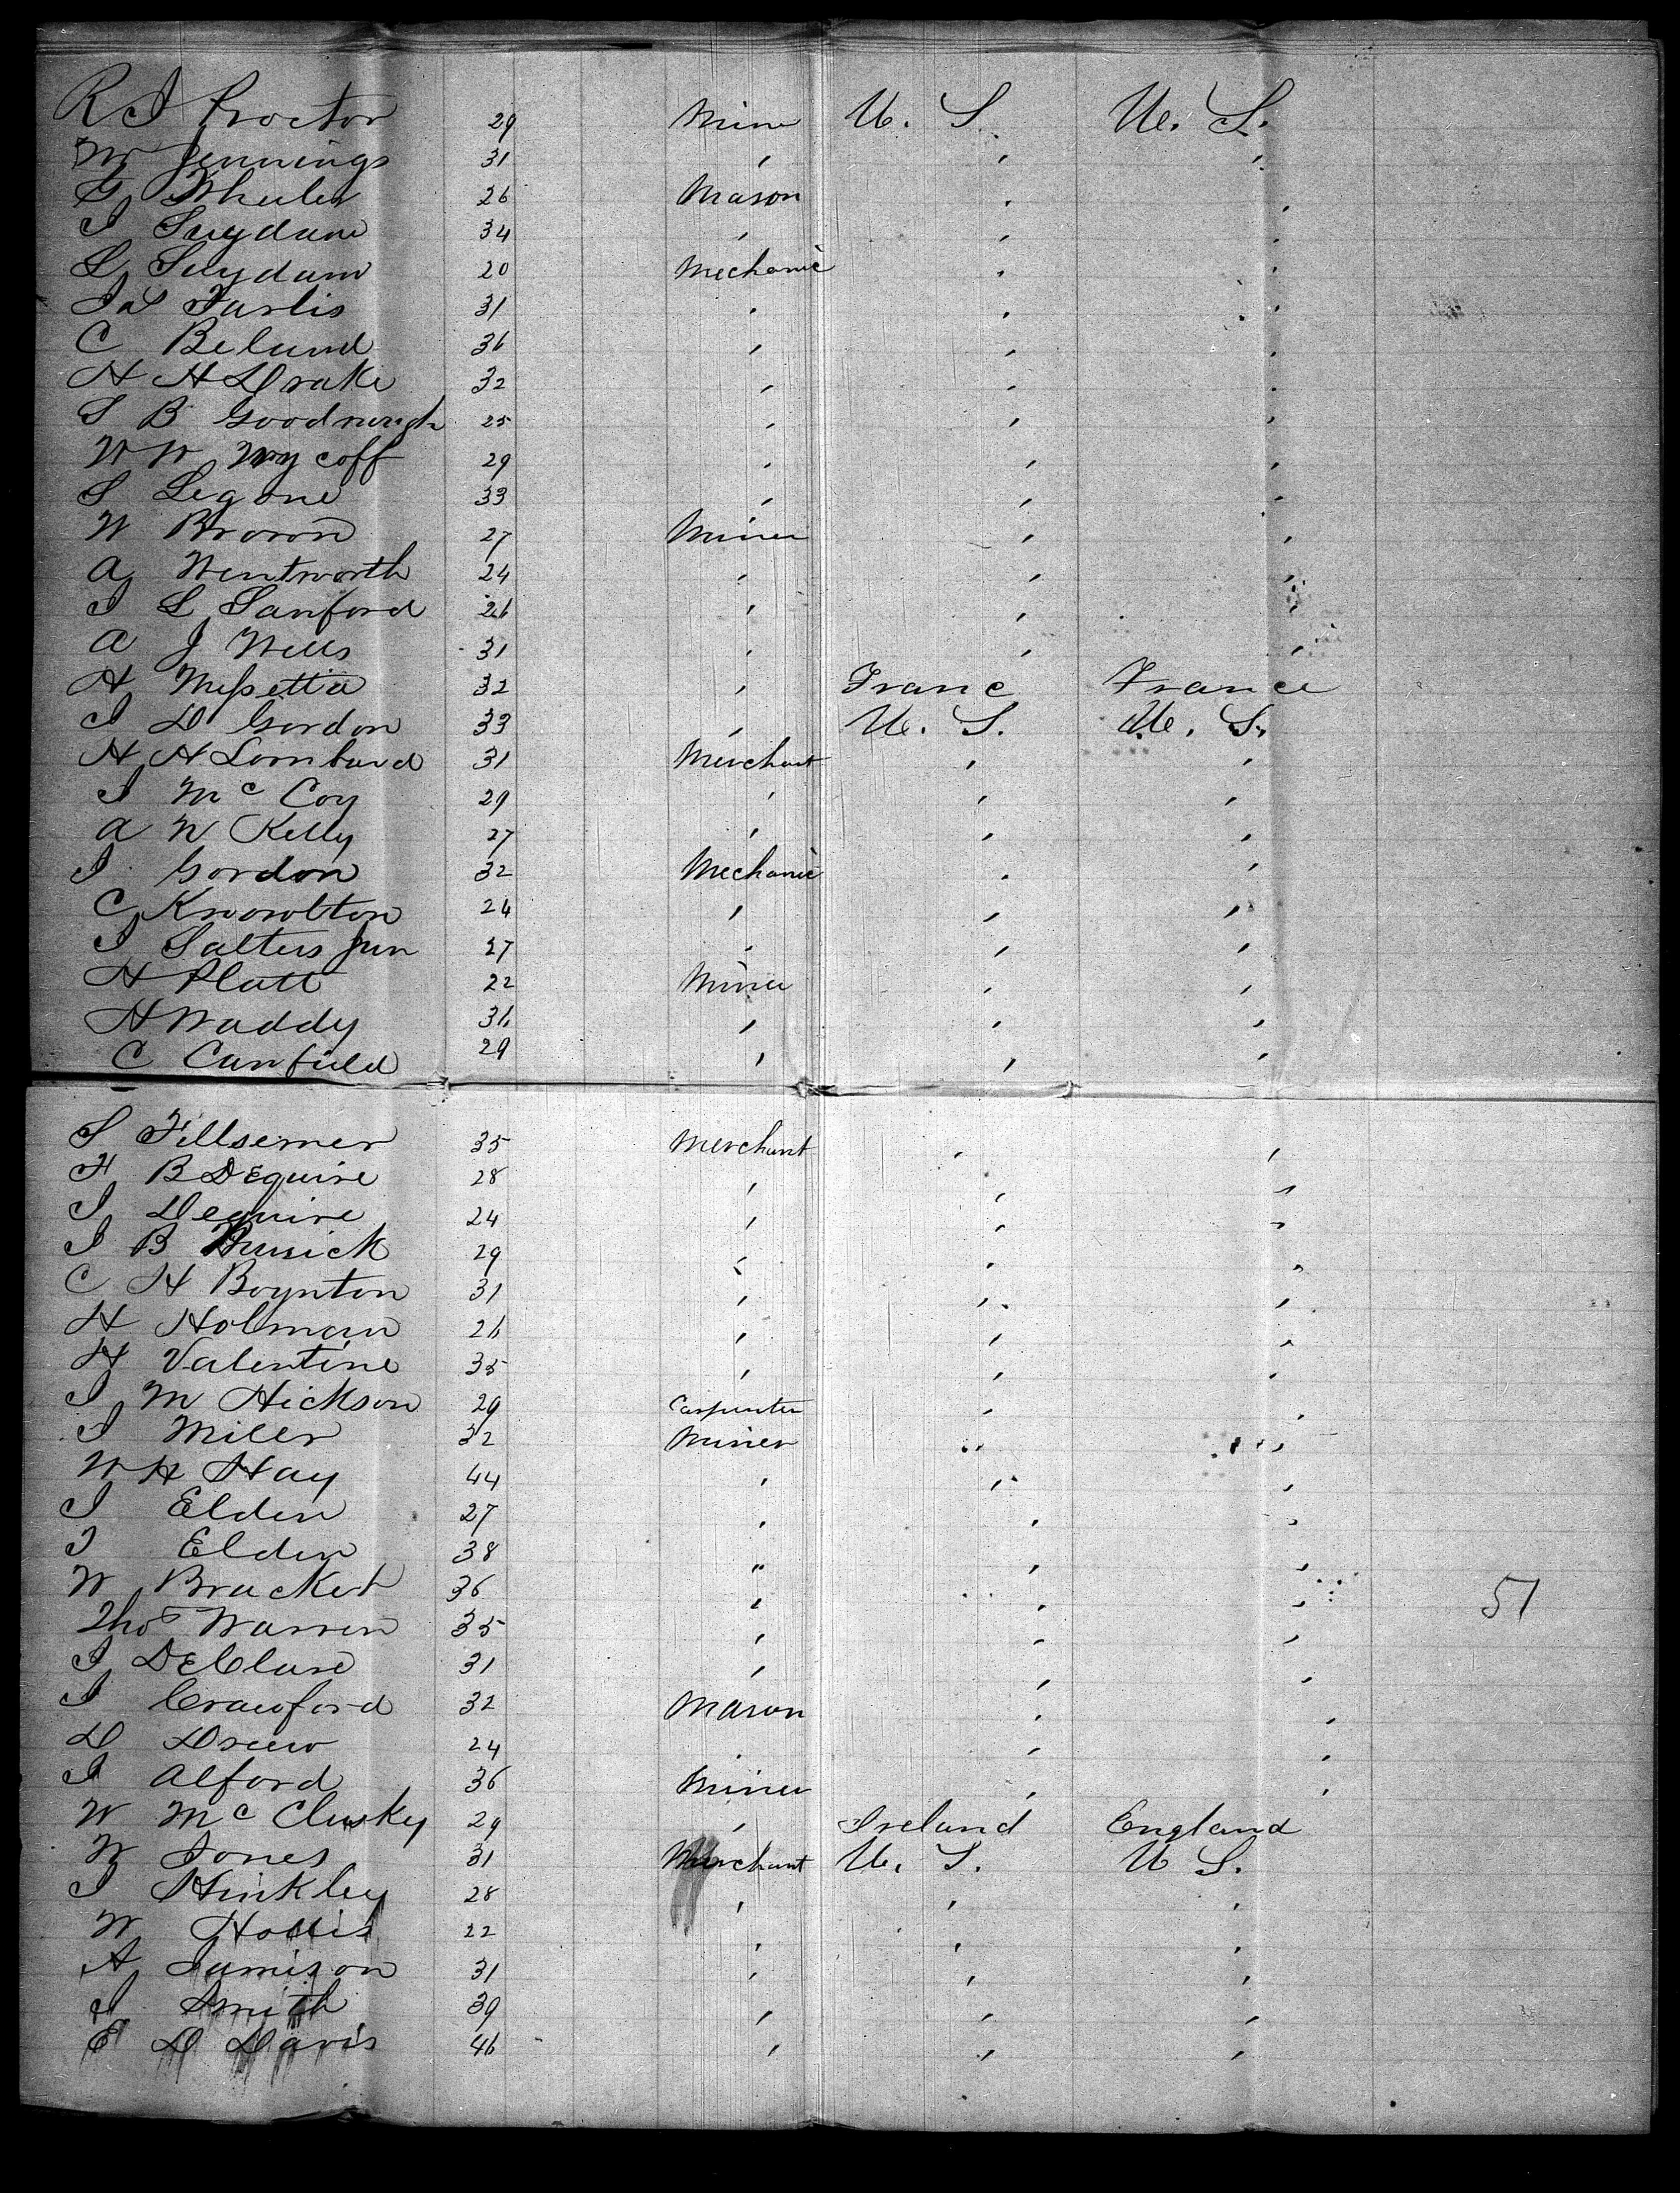 R J Proctor 29 Mine U. S. U. S.
W Jennings 31 , , ,
G Wheeler 26 Mason , ,
J Suydam 34 , , ,
L Suydam 20 Mechanic , ,
Jas Farlis 31 , , ,
C Belund 36 , , ,
H H Drake 32 , , ,
S B Goodnough 25 , , ,
W W Wycoff 29 , , ,
S Legone 33 , , ,
W Brown 27 Miner , ,
A Wentworth 24 , , ,
J L Sanford 26 , , ,
A J Wells 31 , , ,
H Messetta 32 , Franc France
J D Gordon 33 , U. S. U. S.
H H Lombard 31 Merchant , ,
J Mc Coy 29 , , ,
A W Kelly 27 , , ,
J Gordon 32 Mechanic , ,
C Knowlton 24 , , ,
J Salters Jun 27 , , ,
H Platt 22 Miner , ,
H Waddy 36 , , ,
C Canfield 29 , , ,
S Fillsemer 35 Merchant , ,
F B DEquire 28 , , ,
J Dequire 24 , , ,
J B Musick 29 , , ,
C H Boynton 31 , , ,
H Holman 26 , , ,
H Valentine 35 , , ,
J M Hickson 29 Carpenter , ,
J Miller 32 Miner , ,
W H Hay 44 , , ,
J Elden 27 , , ,
J Elden 38 " , ,
W Bracket 36 , , ,
51
Thos Warren 35 , , ,
J DEClure 31 , , ,
J Crawford 32 Mason , ,
D Drew 24 , , ,
J Alford 36 Miner , ,
W Mc Clusky 29 , Ireland England
W Jones 31 Merchant U. S. U S.
J Hinkley 28 , , ,
W Hollis 22 , , ,
A Jamison 31 , , ,
J Smith 39 , , ,
E D Davis 46 , , ,